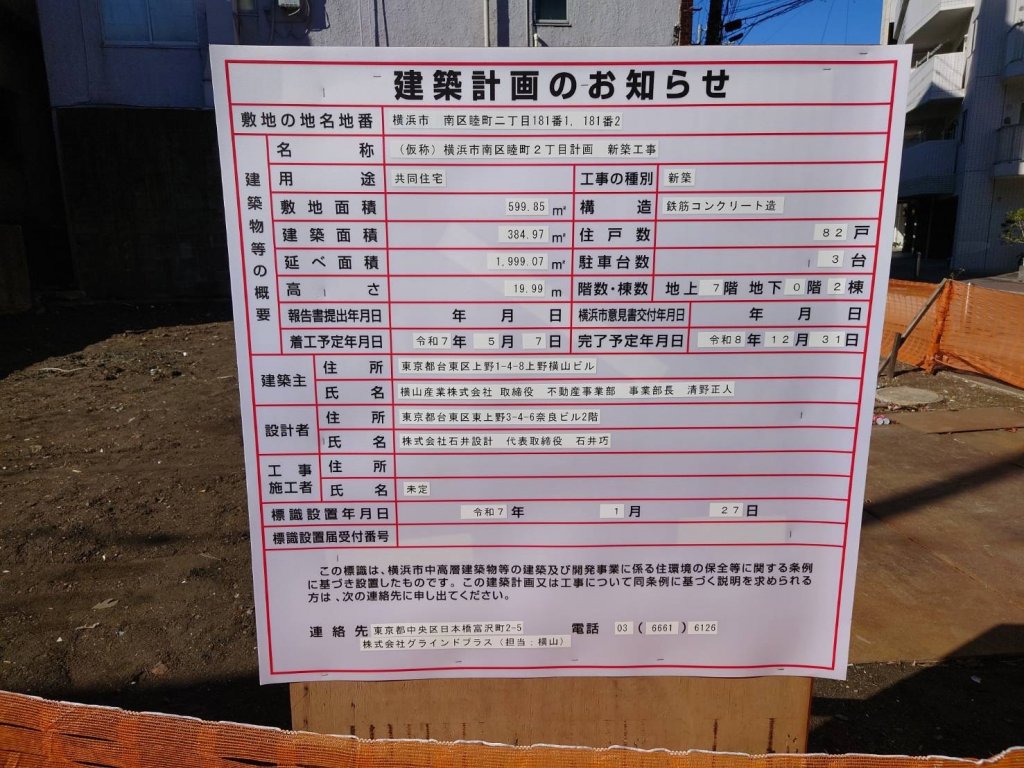 建築計画のお知らせ
敷地の地名地番 横浜市 南区睦町二丁目181番1, 181番2
建築物等の概要
名称 (仮称)横浜市南区睦町2丁目計画 新築工事
用途 共同住宅 工事の種別 新築
敷地面積 599.85㎡ 構造 鉄筋コンクリート造
建築面積 384.97㎡ 住戸数 82戸
延べ面積 1,999.07㎡ 駐車台数 3台
高さ 19.99m 階数・棟数 地上7階 地下0階2棟
報告書提出年月日 年 月 日 横浜市意見書交付年月日 年 月 日
着工予定年月日 令和7年 5月 7日 完了予定年月日 令和8年12月31日
建築主 住所 東京都台東区上野1-4-8上野横山ビル
氏名 横山産業株式会社 取締役 不動産事業部 事業部長 清野正人
設計者 住所 東京都台東区東上野3-4-6奈良ビル2階
氏名 株式会社石井設計 代表取締役 石井巧
工事施工者 住所
氏名 未定
標識設置年月日 令和7年 1月 27日
標識設置届受付番号
この標識は、横浜市中高層建築物等の建築及び開発事業に係る住環境の保全等に関する条例
に基づき設置したものです。この建築計画又は工事について同条例に基づく説明を求められる
方は、次の連絡先に申し出てください。
連絡先 東京都中央区日本橋富沢町2-5 電話 03(6661)6126
株式会社グラインドプラス(担当:横山)